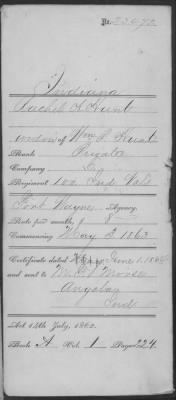 No. 23,672
Indiana
Rachel A. Hunt
widow of Wm. S. Hunt
Rank Private
Company G
Regiment 100 Ind. Vols
Fort Wayne Agency.
Rate per month, $ 8
Commencing May 3 1863
Certificate dated June 1. 1864
and sent to
Morse
Angola
Ind
Act 14th July, 1862.
Book A Vol. 1 Page 224.